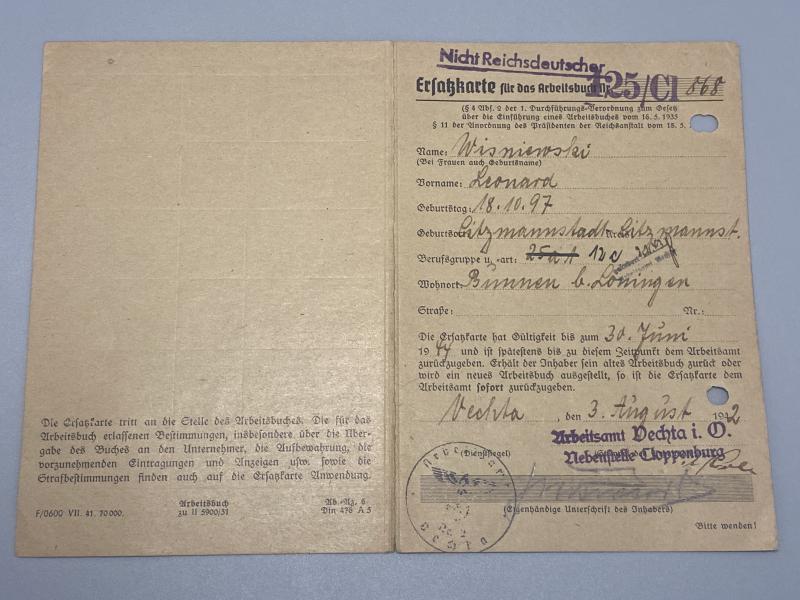 Die Ersatzkarte tritt an die Stelle des Arbeitsbuches. Die für das
Arbeitsbuch erlassenen Bestimmungen, insbesondere über die Über-
gabe des Buches an den Unternehmer, die Aufbewahrung, die
vorzunehmenden Eintragungen und Anzeigen usw. sowie die
Strafbestimmungen finden auch auf die Ersatzkarte Anwendung.
F/0600 VII. 41. 70000.
Arbeitsbuch
zu II 5900/31
Ab.-Az. 6
Din 476 A 5
Nicht Reichsdeutscher
Ersatzkarte für das Arbeitsbuch Nr. 125/Cl 868
(§ 4 Abs. 2 der 1. Durchführungs-Verordnung zum Gesetz
über die Einführung eines Arbeitsbuches vom 16.5.1935
§ 11 der Anordnung des Präsidenten der Reichsanstalt vom 18.5.
Name: Wisniewski
(Bei Frauen auch Geburtsname)
Vorname: Leonard
Geburtstag: 18.10.97
Geburtsort: Litzmannstadt Kreis Litzmannst.
Berufsgruppe u. -art: 25a1 12c
Wohnort: Bunnen b. Löningen
Straße: Nr.:
Die Ersatzkarte hat Gültigkeit bis zum 30. Juni
1944 und ist spätestens bis zu diesem Zeitpunkt dem Arbeitsamt
zurückzugeben. Erhält der Inhaber sein altes Arbeitsbuch zurück oder
wird ein neues Arbeitsbuch ausgestellt, so ist die Ersatzkarte dem
Arbeitsamt sofort zurückzugeben.
Vechta, den 3. August 1942
Arbeitsamt Vechta i. O.
(Dienstsiegel)
Nebenstelle Cloppenburg
(Eigenhändige Unterschrift des Inhabers)
Bitte wenden!